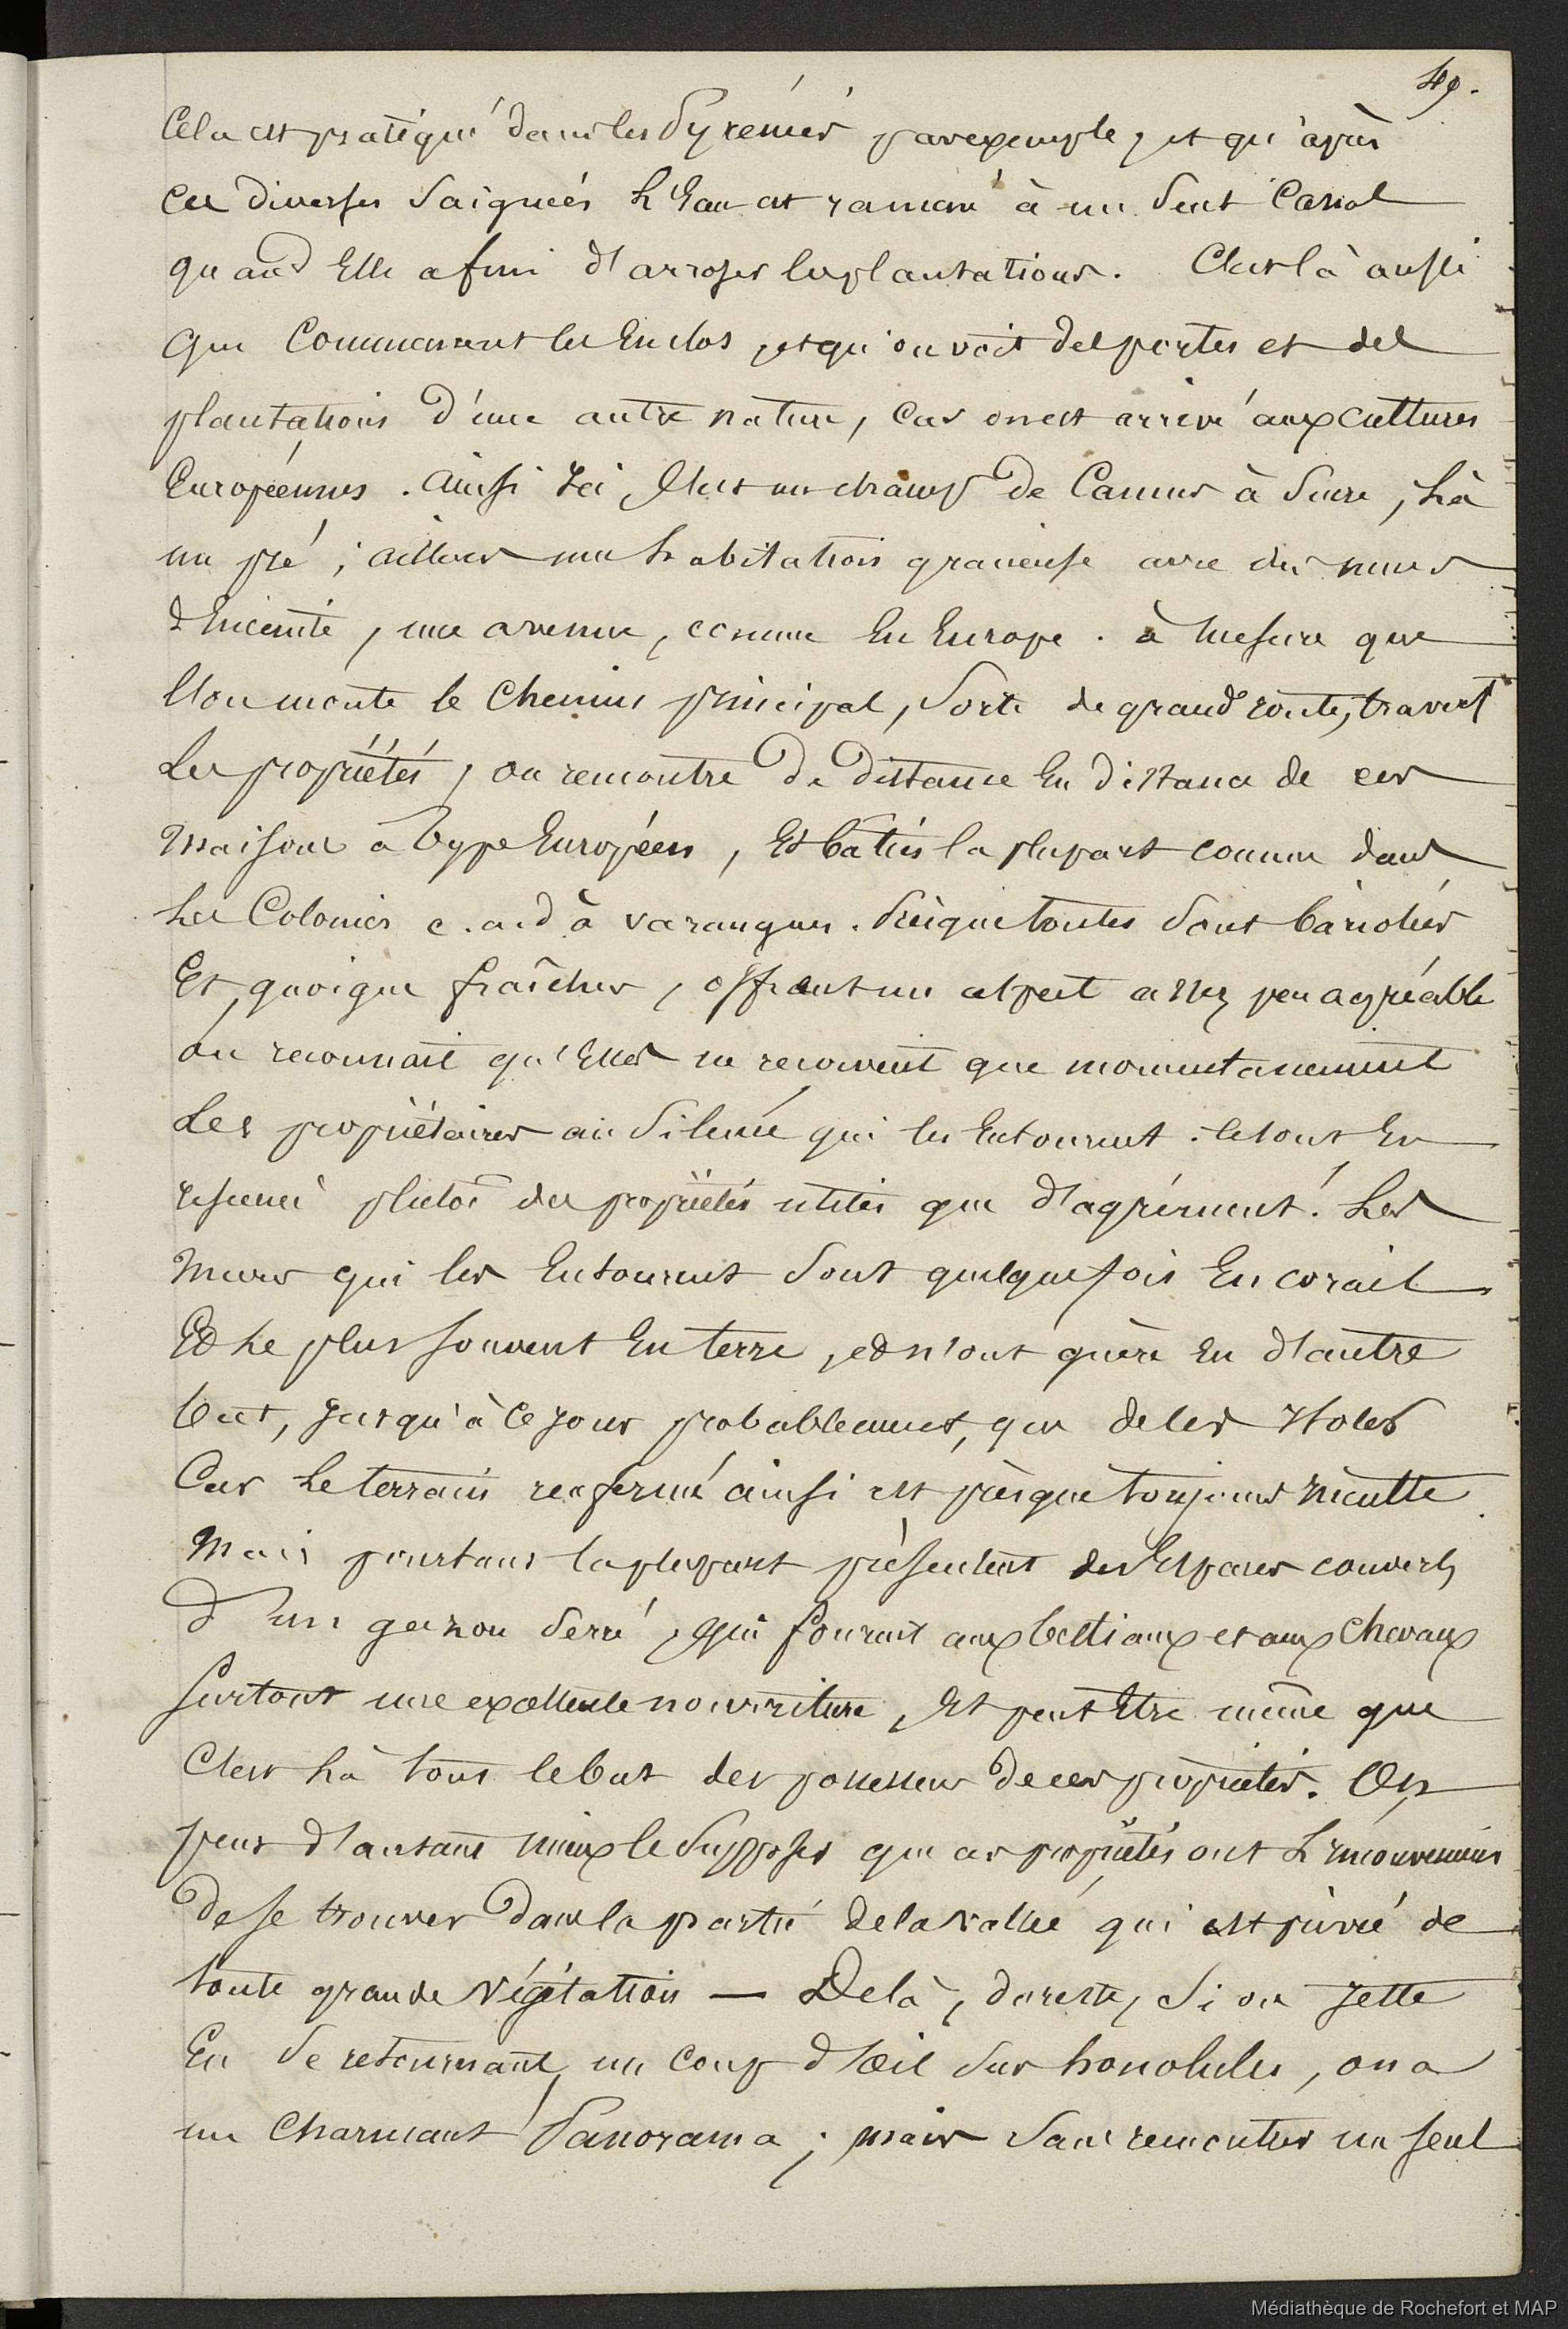 49.
Cela est pratiqué dans les Pyrénées par exemple, et qu'après
ces diverses saignées l'Eau est ramené à un seul Canal
quand Elle a fini d'arroser les plantations. C'est là aussi
que Commencent les Enclos, et qu'on voit des portes et des
plantations d'une autre nature, car on est arrivé aux cultures
Européennes. Ainsi Ici, c'est un champ de Cannes à Sucre, là
un pré ; ailleurs une habitation gracieuse avec des murs
d'Enceinte, une avenue, comme En Europe. à mesure que
l'on monte le Chemin principal, sorte de grand route, travers
les propriétés, on rencontre De Distance En Distance de ces
maisons à type Européen, Et bâties la plupart comme dans
les Colonies c.a.d à varangues. Presque toutes sont bariolées
Et, quoique fraîches, offrent un aspect assez peu agréable
on reconnait qu'Elles ne reçoivent que momentanement
les propriétaires au Silence qui les Entourent : ce sont En
résumé plutot des propriétés utiles que d'agrément. Les
murs qui les Entourent sont quelquefois En corail
Et le plus souvent En terre, et n'ont guère eu d'autre
but, jusqu'à ce jour probablement, que de les isoler
Car le terrain renfermé ainsi est presque toujours inculte
Mais pourtant la plupart présentent des Espaces couverts
d'un gazon serré, qui fournit aux bestiaux et aux Chevaux
surtout une excellente nourriture, Et peut Etre même que
C'est là tout le but des possesseurs de ces propriétés. On
peut d'autant mieux le supposer que ces propriétés ont l'inconvenient
De se trouver Dans la partie de la vallée qui est privée de
toute grande végétation — De là, du reste, si on jette
En se retournant, un coup d'œil sur honolulu, on a
un Charmant Panorama ; mais sans rencontrer un seul
Médiathèque de Rochefort et MAP